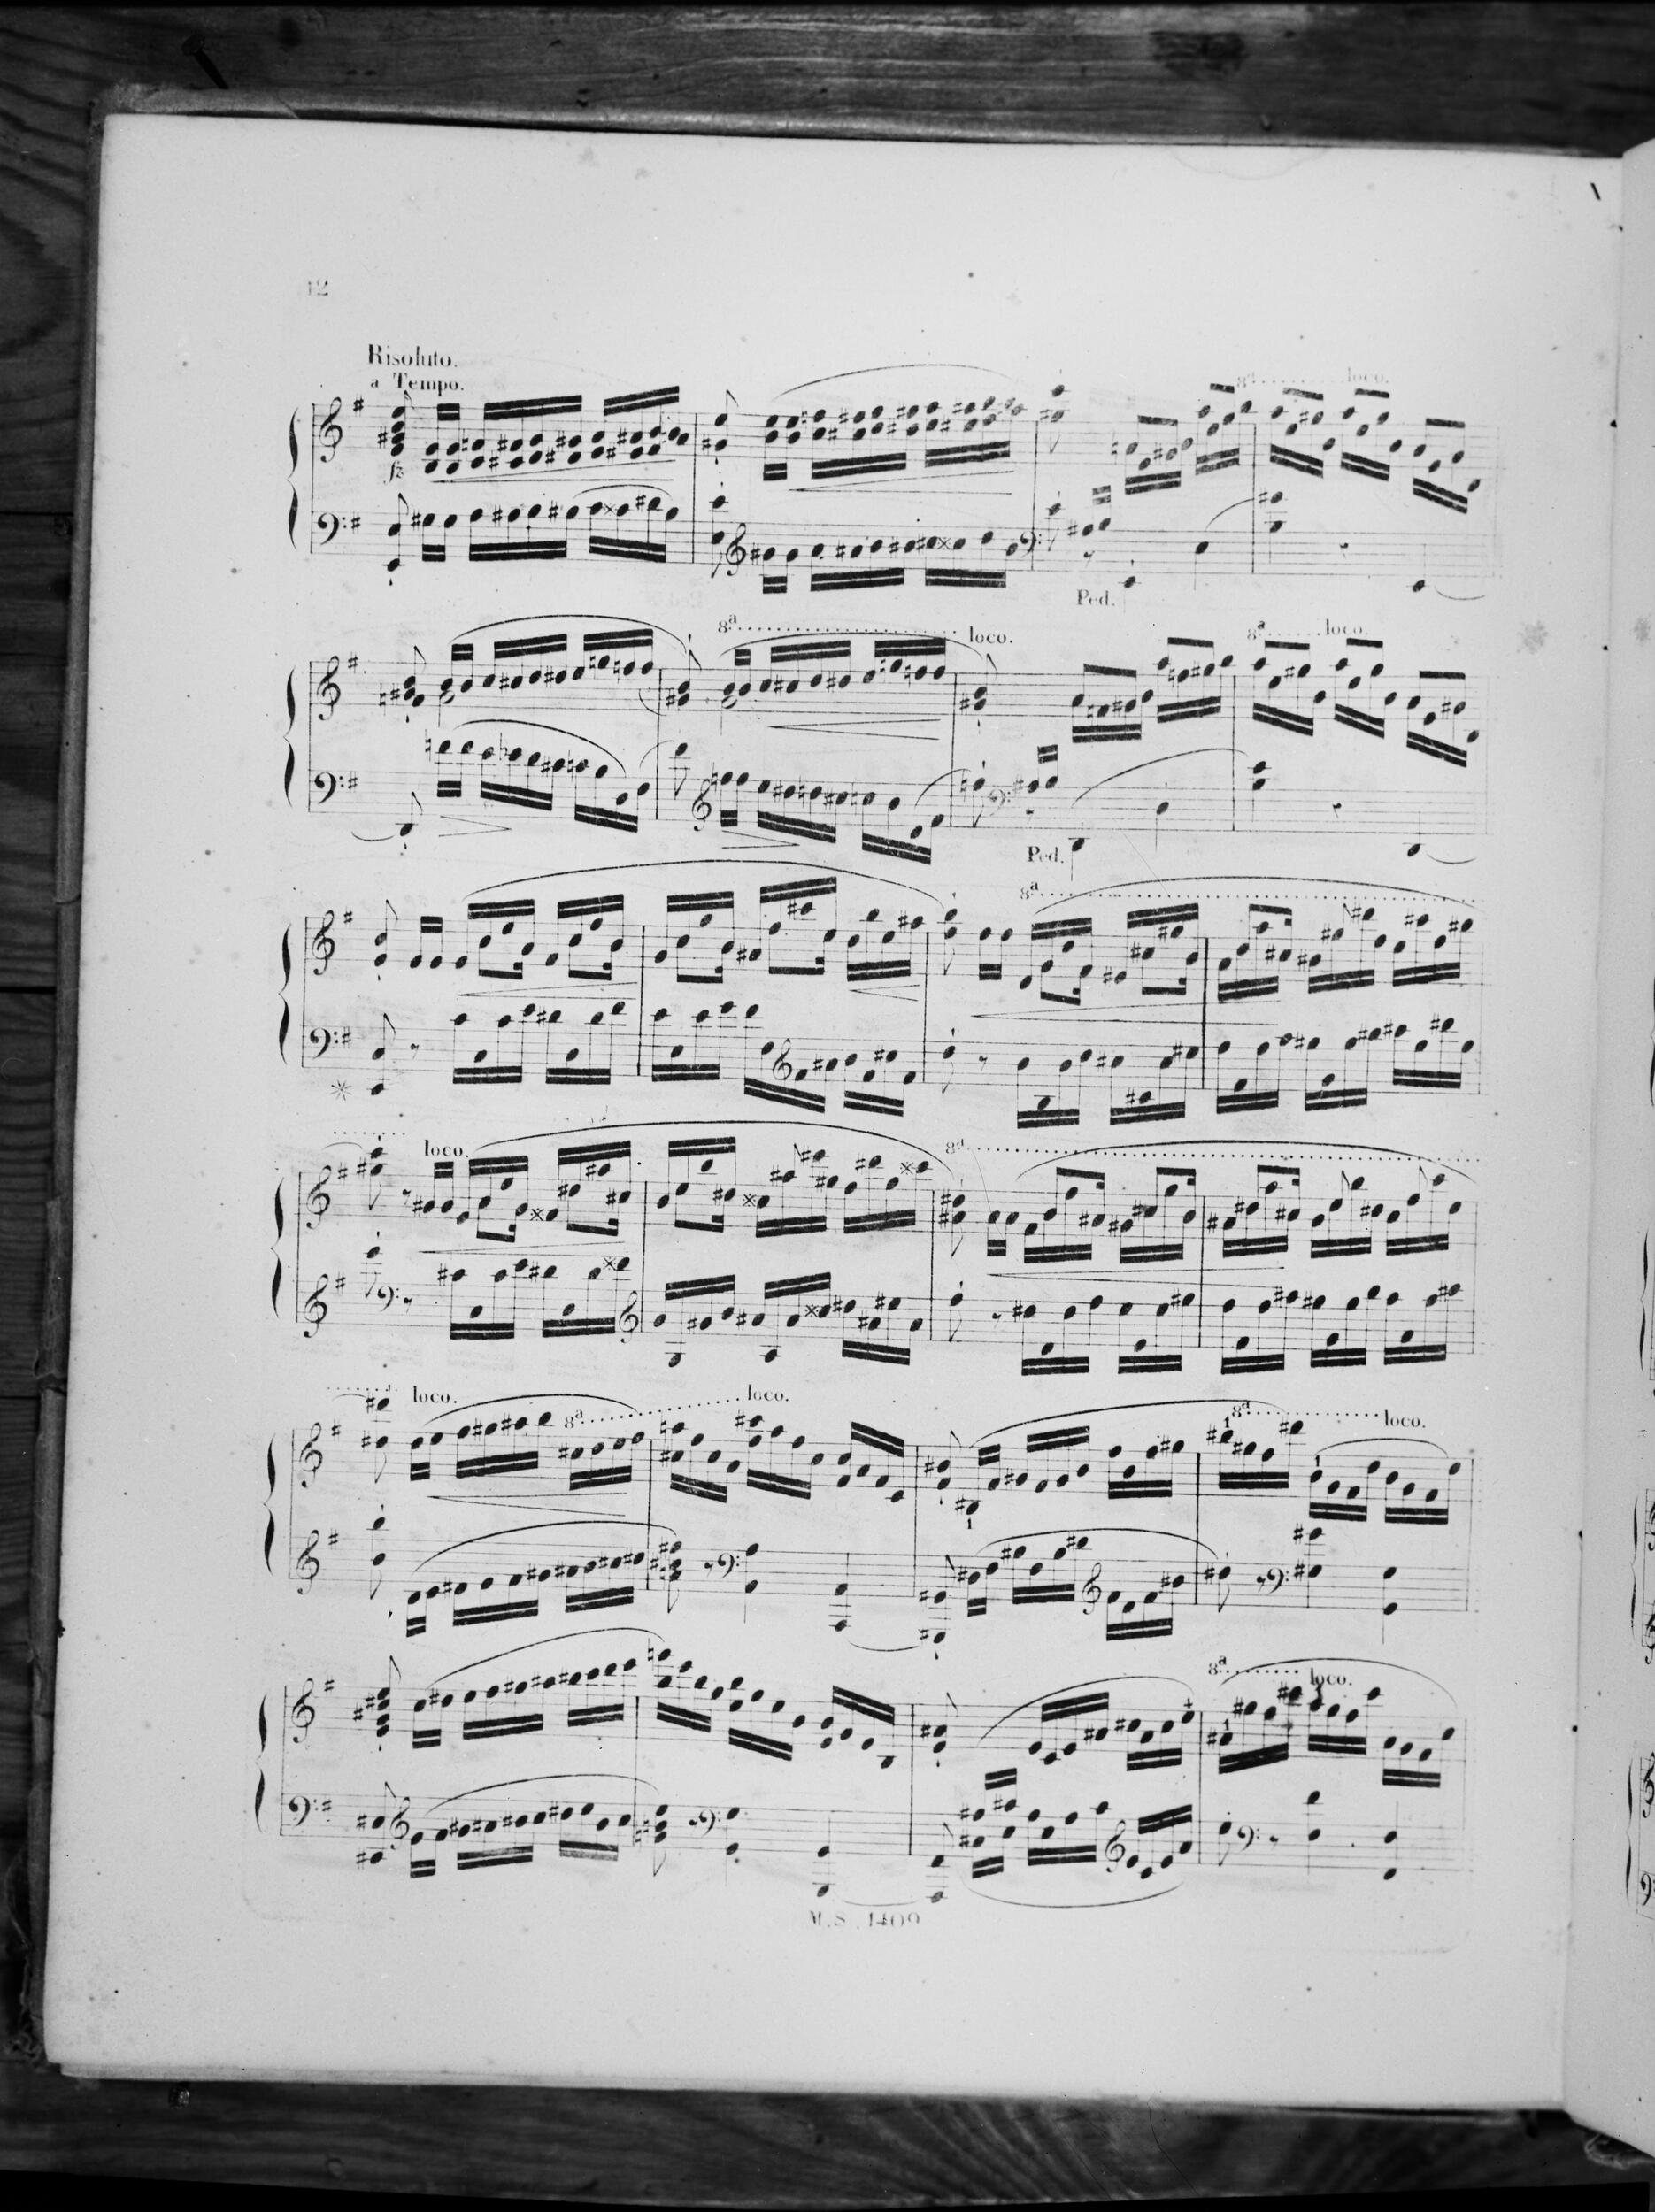 12
Risoluto.
a Tempo.
8ª loco.
fz
Ped.
8ª loco. 8ª loco.
Ped.
8ª
loco. 8ª
loco. 8ª loco. 8ª loco.
1 1 1
8ª loco.
1 4 1
M.S. 1409